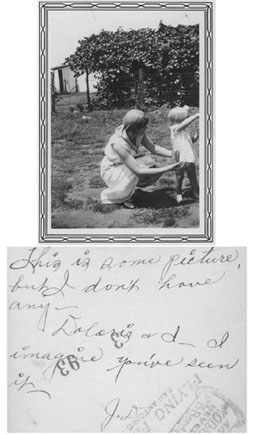 This is some picture,
but I dont have
any —
Doloris & I — I
imagine you've seen
it —
93
J.D.
FLYING